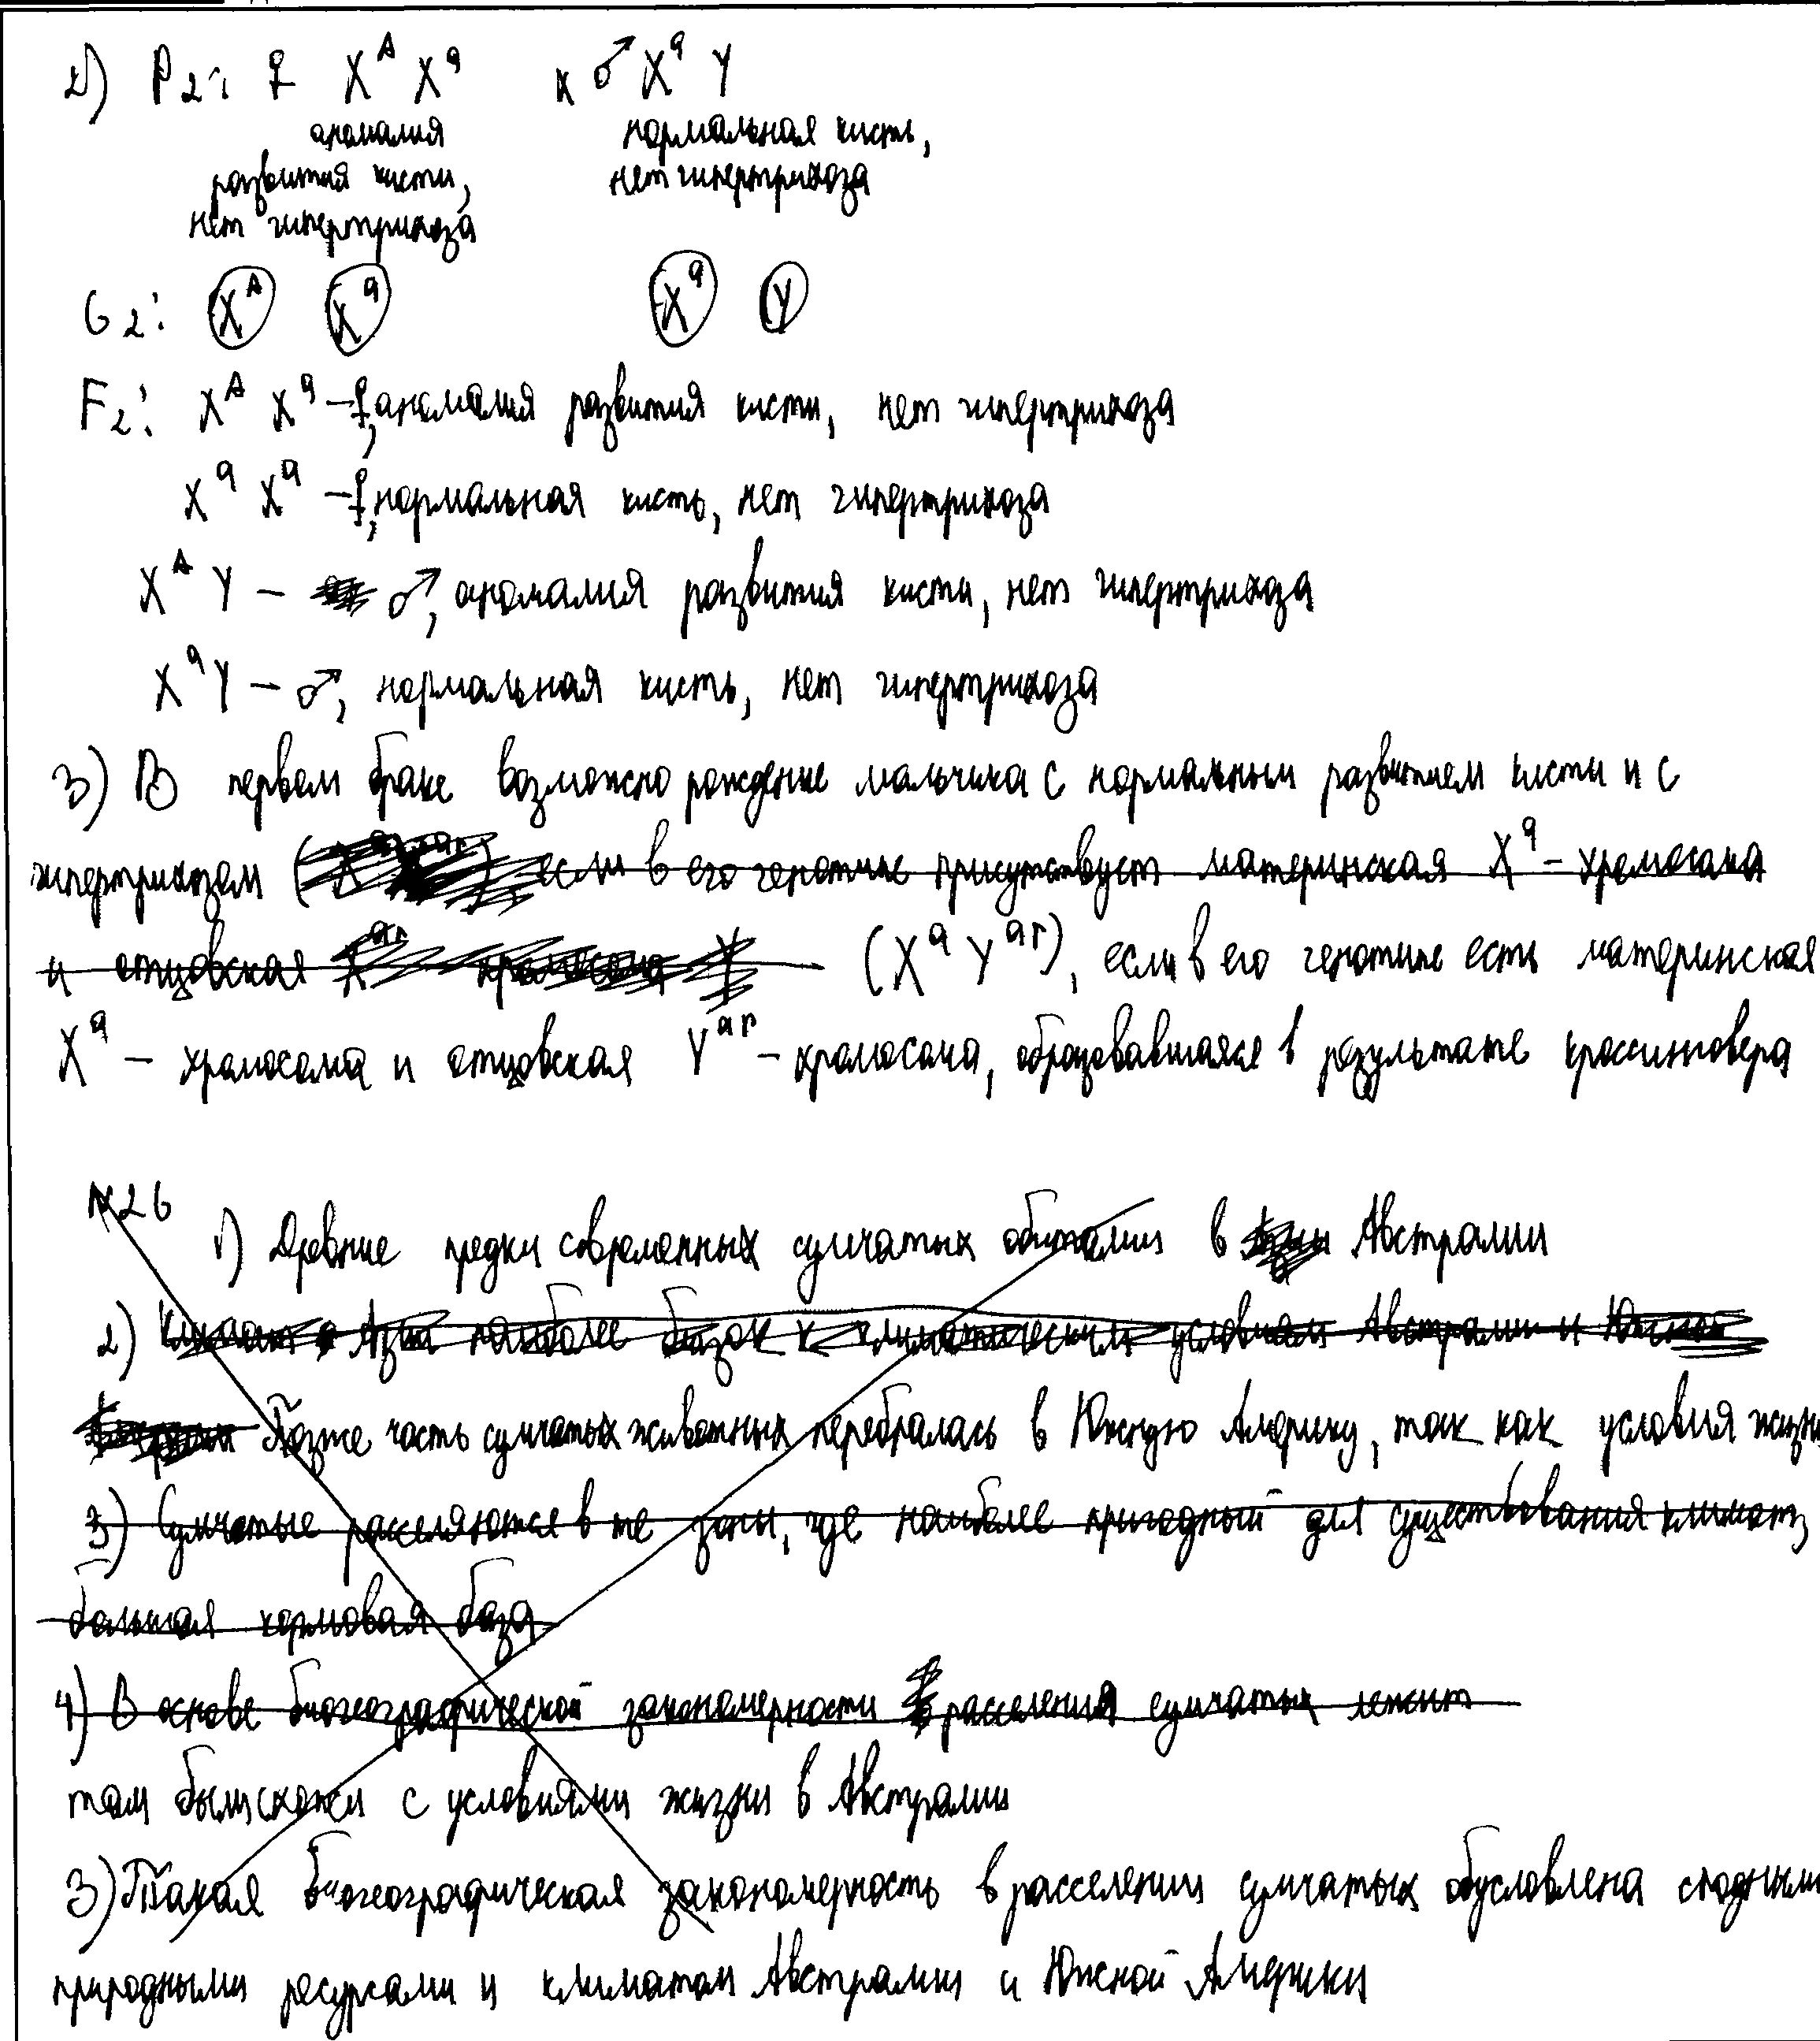 2) P₂: ♀ Xᴬ Xᵃ х ♂ Xᵃ Y
аномалия нормальная кисть,
развития кисти, нет гипертрихоза
нет гипертрихоза
G₂: Xᴬ Xᵃ Xᵃ Y
F₂: Xᴬ Xᵃ – ♀, аномалия развития кисти, нет гипертрихоза
Xᵃ Xᵃ – ♀, нормальная кисть, нет гипертрихоза
Xᴬ Y – ♂, аномалия развития кисти, нет гипертрихоза
Xᵃ Y – ♂, нормальная кисть, нет гипертрихоза
3) В первом браке возможно рождение мальчика с нормальным развитием кисти и с
гипертрихозом ( если в его генотипе присутствует материнская Xᵃ – хромосома
и отцовская Xᵃʳ хромосома Y (Xᵃ Yᵃʳ), если в его генотипе есть материнская
Xᵃ – хромосома и отцовская Yᵃʳ – хромосома, образовавшаяся в результате кроссинговера
№26
1) Древние предки современных сумчатых обитали в Австралии
2) Климат Азии наиболее близок к климатическим условиям Австралии и Южной
Позже часть сумчатых животных перебралась в Южную Америку, так как условия жизни
3) Сумчатые расселяются в те зоны, где наиболее пригодный для существования климат,
большая кормовая база
4) В основе биогеографической закономерности расселения сумчатых лежит
там были схожи с условиями жизни в Австралии
3) Такая биогеографическая закономерность в расселении сумчатых обусловлена сходными
природными ресурсами и климатом Австралии и Южной Америки